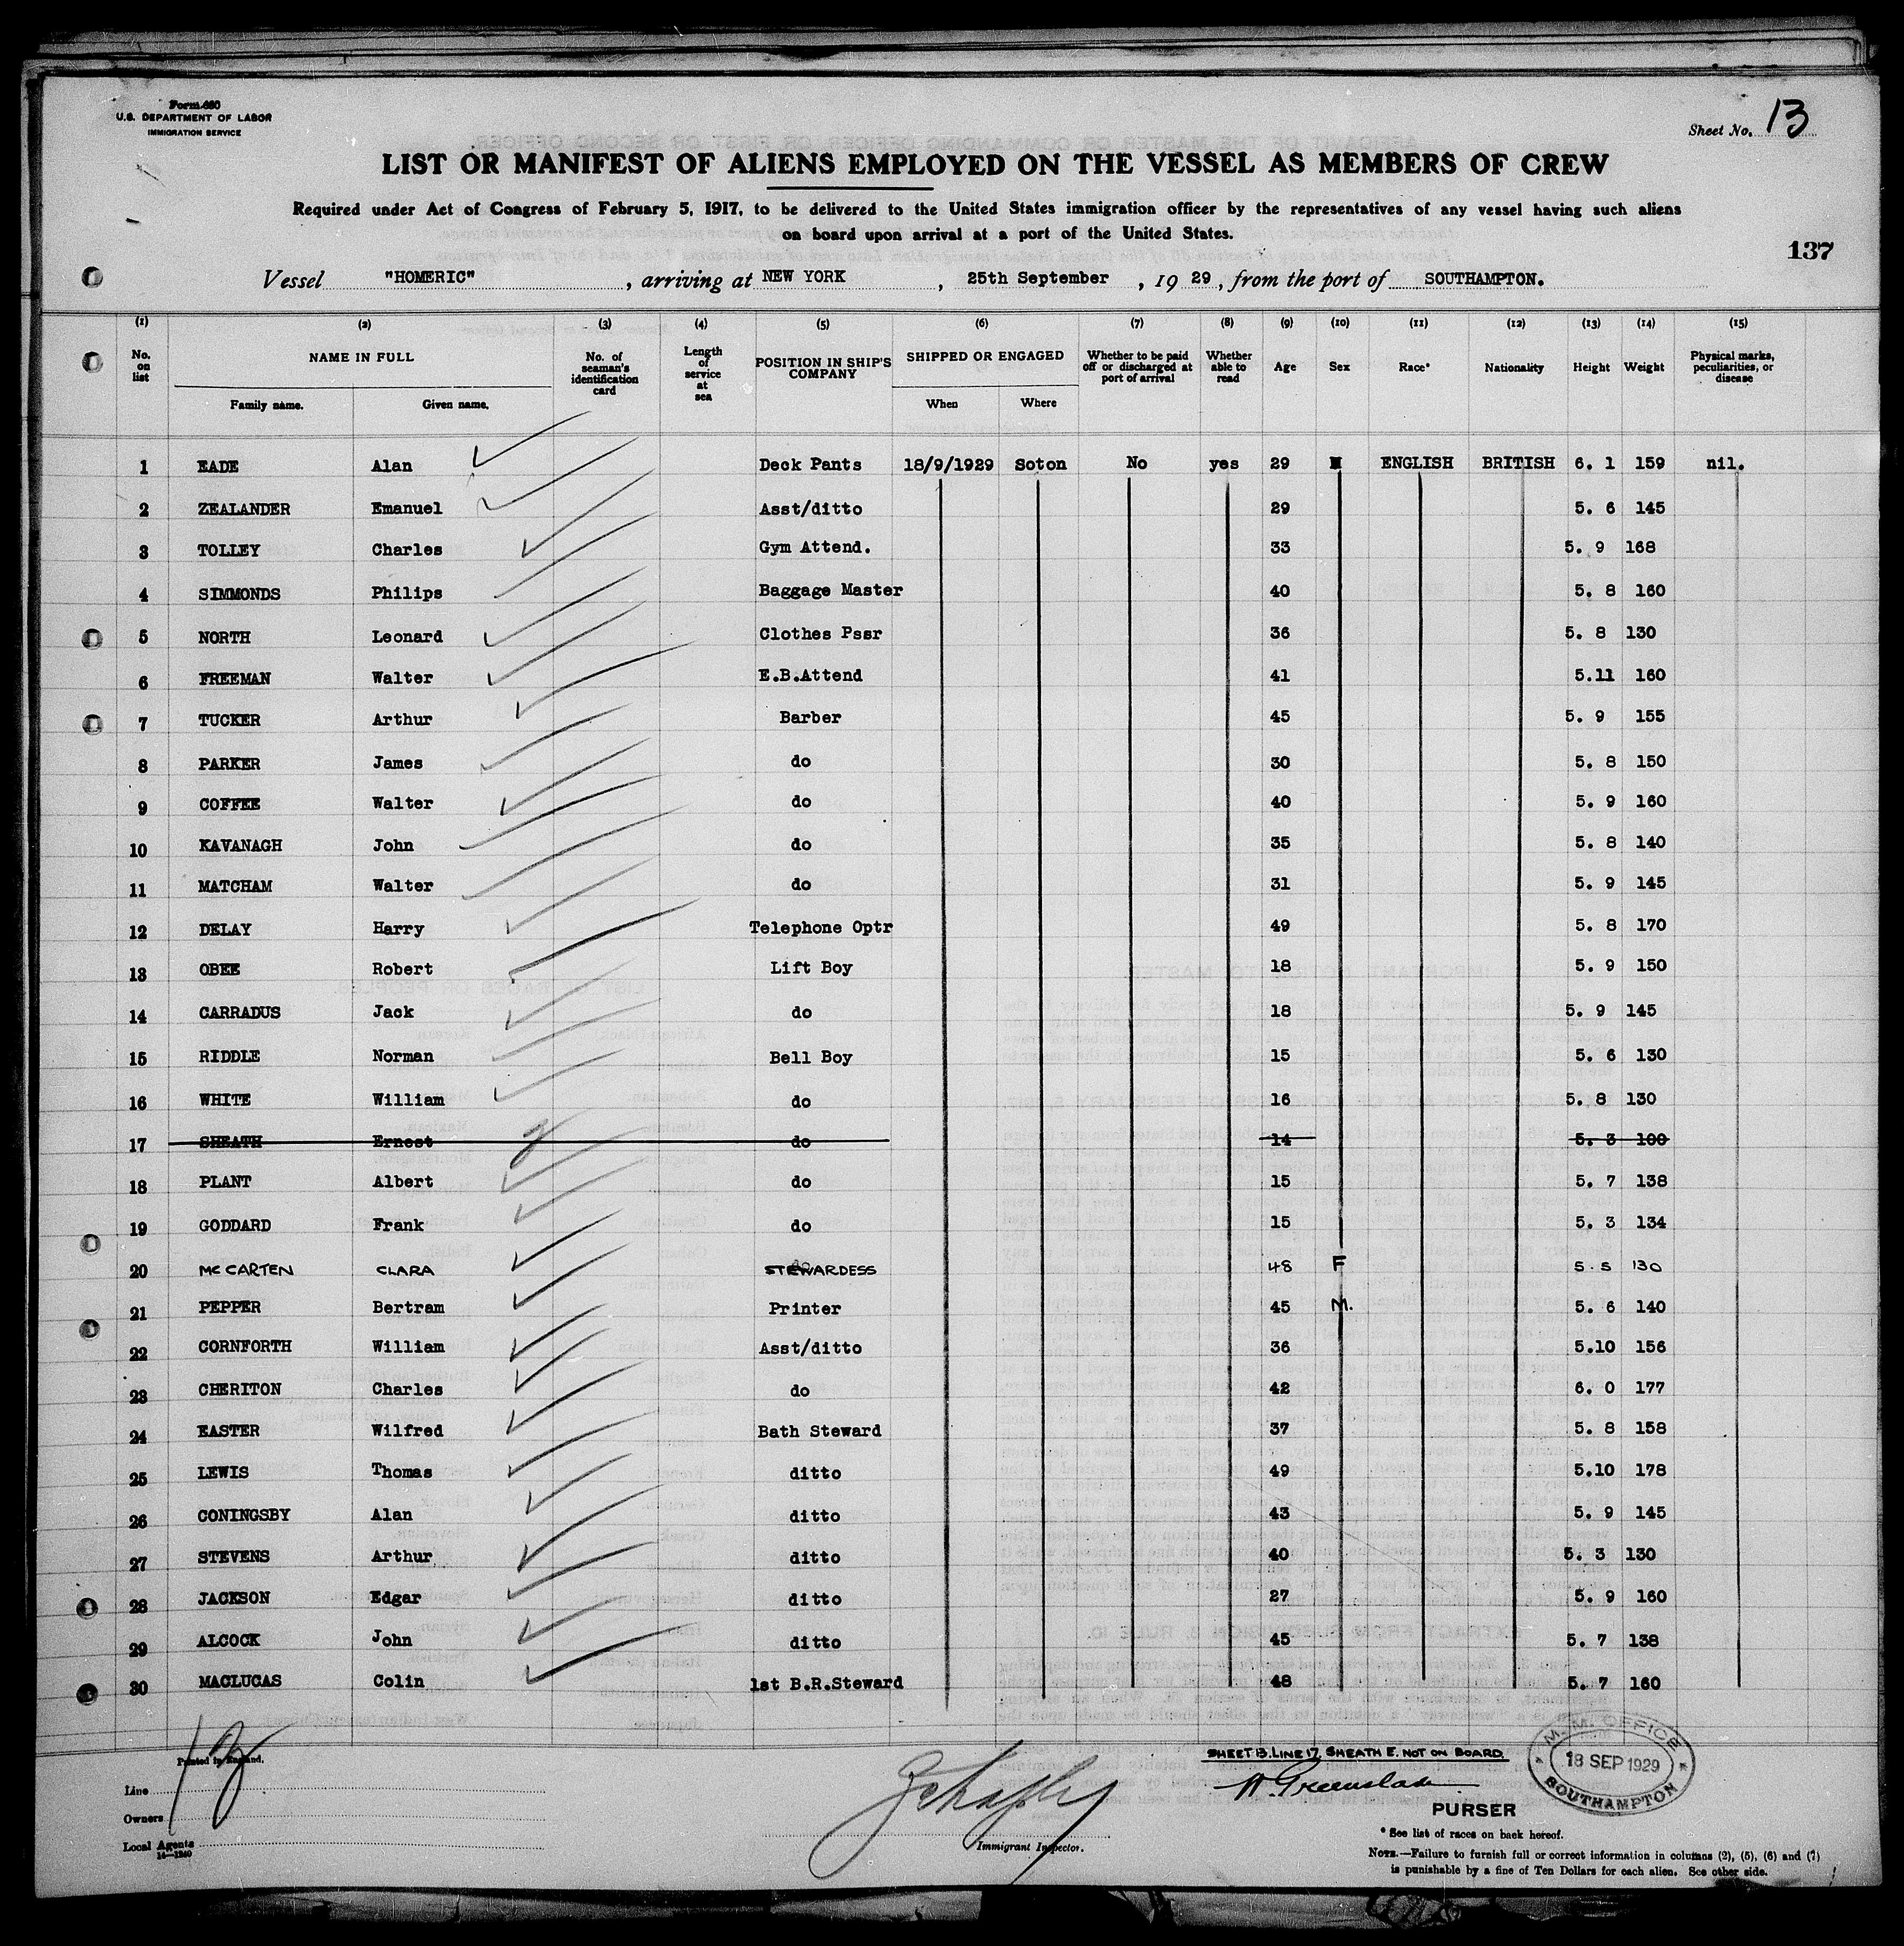 Form 680
U.S. DEPARTMENT OF LABOR
IMMIGRATION SERVICE
Sheet No. 13
LIST OR MANIFEST OF ALIENS EMPLOYED ON THE VESSEL AS MEMBERS OF CREW
Required under Act of Congress of February 5, 1917, to be delivered to the United States immigration officer by the representatives of any vessel having such aliens
on board upon arrival at a port of the United States.
137
Vessel "HOMERIC", arriving at NEW YORK, 25th September, 1929, from the port of SOUTHAMPTON.
(1) (2) (3) (4) (5) (6) (7) (8) (9) (10) (11) (12) (13) (14) (15)
No. on list NAME IN FULL No. of seaman's identification card Length of service at sea POSITION IN SHIP'S COMPANY SHIPPED OR ENGAGED Whether to be paid off or discharged at port of arrival Whether able to read Age Sex Race* Nationality Height Weight Physical marks, peculiarities, or disease
Family name. Given name. When Where
1 EADE Alan Deck Pants 18/9/1929 Soton No yes 29 M ENGLISH BRITISH 6. 1 159 nil.
2 ZEALANDER Emanuel Asst/ditto 29 5. 6 145
3 TOLLEY Charles Gym Attend. 33 5. 9 168
4 SIMMONDS Philips Baggage Master 40 5. 8 160
5 NORTH Leonard Clothes Pssr 36 5. 8 130
6 FREEMAN Walter E.B.Attend 41 5.11 160
7 TUCKER Arthur Barber 45 5. 9 155
8 PARKER James do 30 5. 8 150
9 COFFEE Walter do 40 5. 9 160
10 KAVANAGH John do 35 5. 8 140
11 MATCHAM Walter do 31 5. 9 145
12 DELAY Harry Telephone Optr 49 5. 8 170
13 OBEE Robert Lift Boy 18 5. 9 150
14 CARRADUS Jack do 18 5. 9 145
15 RIDDLE Norman Bell Boy 15 5. 6 130
16 WHITE William do 16 5. 8 130
17 SHEATH Ernest do 14 5. 3 100
18 PLANT Albert do 15 5. 7 138
19 GODDARD Frank do 15 5. 3 134
20 MCCARTEN CLARA STEWARDESS 48 F 5.5 130
21 PEPPER Bertram Printer 45 M. 5. 6 140
22 CORNFORTH William Asst/ditto 36 5.10 156
23 CHERITON Charles do 42 6. 0 177
24 EASTER Wilfred Bath Steward 37 5. 8 158
25 LEWIS Thomas ditto 49 5.10 178
26 CONINGSBY Alan ditto 43 5. 9 145
27 STEVENS Arthur ditto 40 5. 3 130
28 JACKSON Edgar ditto 27 5. 9 160
29 ALCOCK John ditto 45 5. 7 138
30 MACLUCAS Colin 1st B.R.Steward 48 5. 7 160
Printed in England.
Line
Owners
Local Agents
14—1240
Immigrant Inspector.
SHEET 13. LINE 17. SHEATH E. NOT ON BOARD.
PURSER
M. M. OFFICE
18 SEP 1929
SOUTHAMPTON
* See list of races on back hereof.
NOTE.—Failure to furnish full or correct information in columns (2), (5), (6) and (7)
is punishable by a fine of Ten Dollars for each alien. See other side.